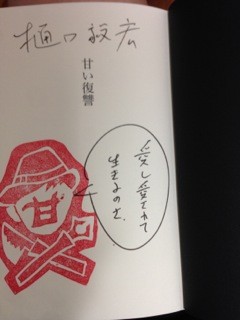 樋口毅宏
甘い復讐
愛し愛されて
生きるのさ。
甘